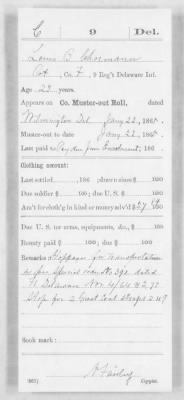 C 9 Del.
Louis B. Schormann
Pvt, Co. F, 9 Reg't Delaware Inf.
Age 23 years.
Appears on Co. Muster-out Roll, dated
Wilmington Del Jany 22, 1865.
Muster-out to date Jany 22, 1865.
Last paid to Pay due from Enrolment, 186
Clothing account:
Last settled , 186 ; drawn since $ 100
Due soldier $ 100; due U. S. $ 100
Am't for cloth'g in kind or money adv'd $ 27
Due U. S. for arms, equipments, &c., $ 100
Bounty paid $ 100; due $ 100
Remarks: Stoppage for Transportation
as per Special No 392 dated
Ft Delaware Nov 4/64 $2.72
Stop for 2 Great Coat Straps
Book mark:
Copyist.